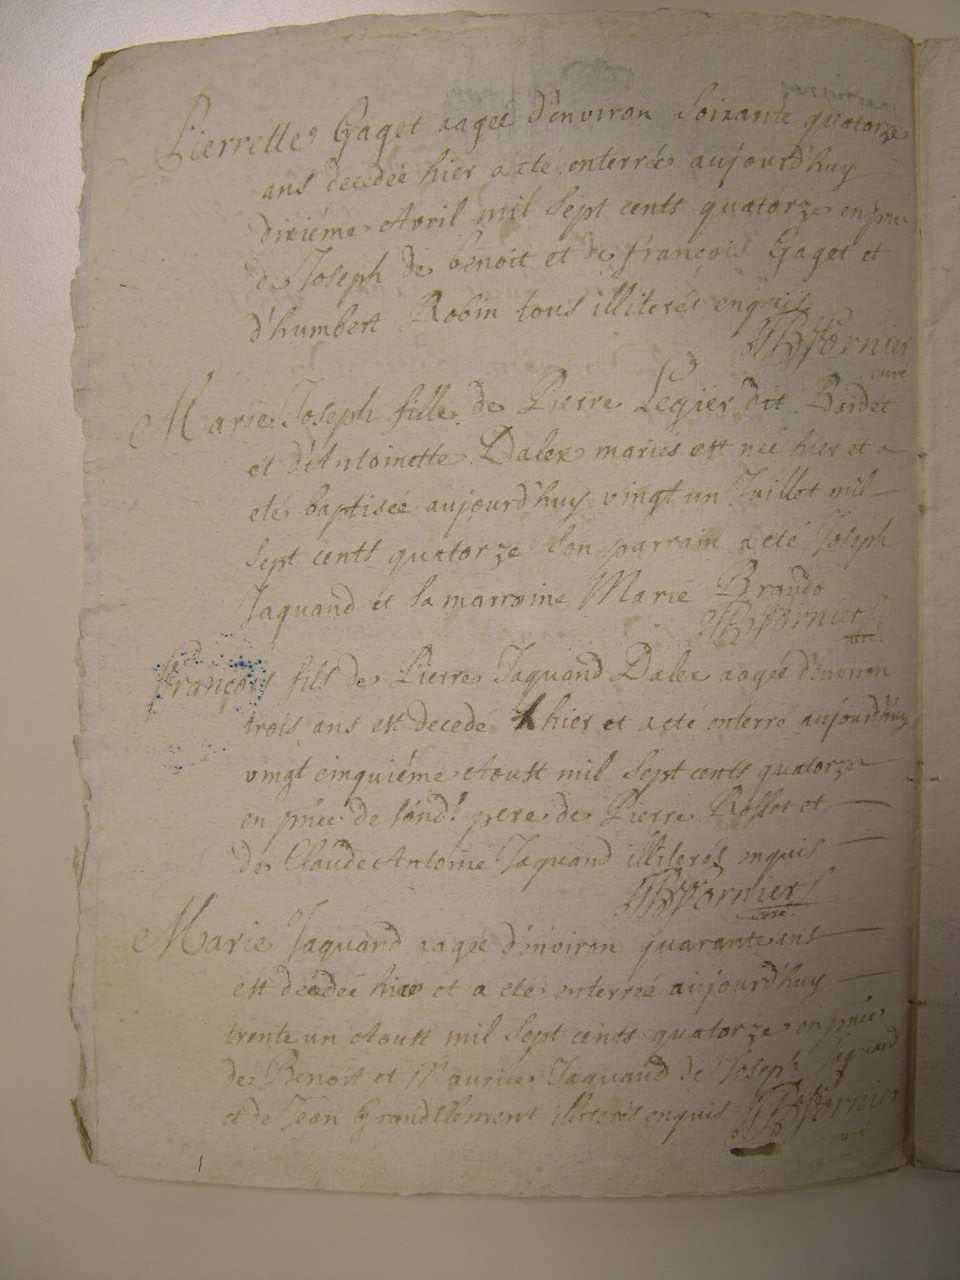 Pierrette Gaget aagée d'environ soixante quatorze
ans decedée hier a eté enterrée aujourd'huy
dixiéme Avril mil sept cents quatorze en pnce
de Joseph de benoit et de françois Gaget et
d'humbert Robin tous illiterés enquis
Fornier
curé
Marie Joseph fille de Pierre Legier dit Bordet
et d'Antoinette Dalex mariés est neé hier et a
eté baptiseé aujourd'huy vingt un Juillet mil
sept cents quatorze son parrain a eté Joseph
Jaquand et la marraine Marie
Fornier
curé
françois fils de Pierre Jaquand Dalex aagé d'environ
trois ans est decedé hier et a eté enterré aujourd'huy
vingt cinquiéme Aoust mil sept cents quatorze
en pnce de sond. pere de Pierre Rosset et
de Claude Antoine Jaquand illiteres enquis
Fornier
curé
Marie Jaquand aagée d'environ quarante ans
est decedeé hier et a eté enterreé aujourd'huy
trente un Aoust mil sept cents quatorze en pnce
de Benoit et Maurice Jaquand de Joseph Jaquand
et de Jean Grandclement illiterés enquis
Fornier
curé